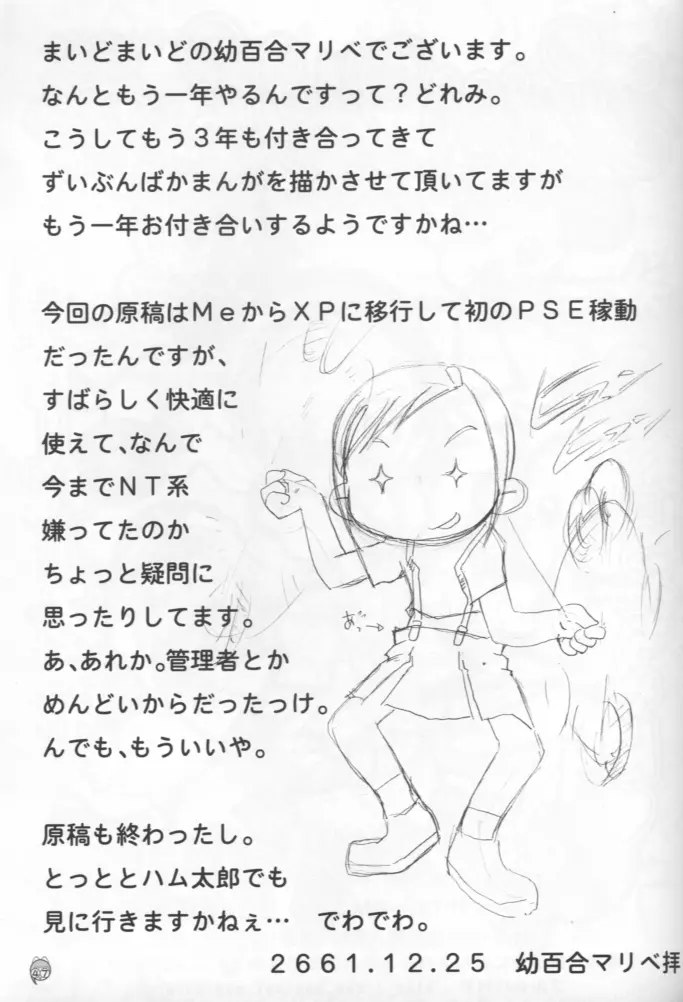 まいどまいどの幼百合マリベでございます。
なんともう一年やるんですって？どれみ。
こうしてもう３年も付き合ってきて
ずいぶんばかまんがを描かさせて頂いてますが
もう一年お付き合いするようですかね…
今回の原稿はＭｅからＸＰに移行して初のＰＳＥ稼動
だったんですが、
すばらしく快適に
使えて、なんで
今までＮＴ系
嫌ってたのか
ちょっと疑問に
思ったりしてます。
あ、あれか。管理者とか
めんどいからだったっけ。
んでも、もういいや。
あっ
原稿も終わったし。
とっととハム太郎でも
見に行きますかねぇ…　でわでわ。
２６６１.１２.２５　幼百合マリベ拝